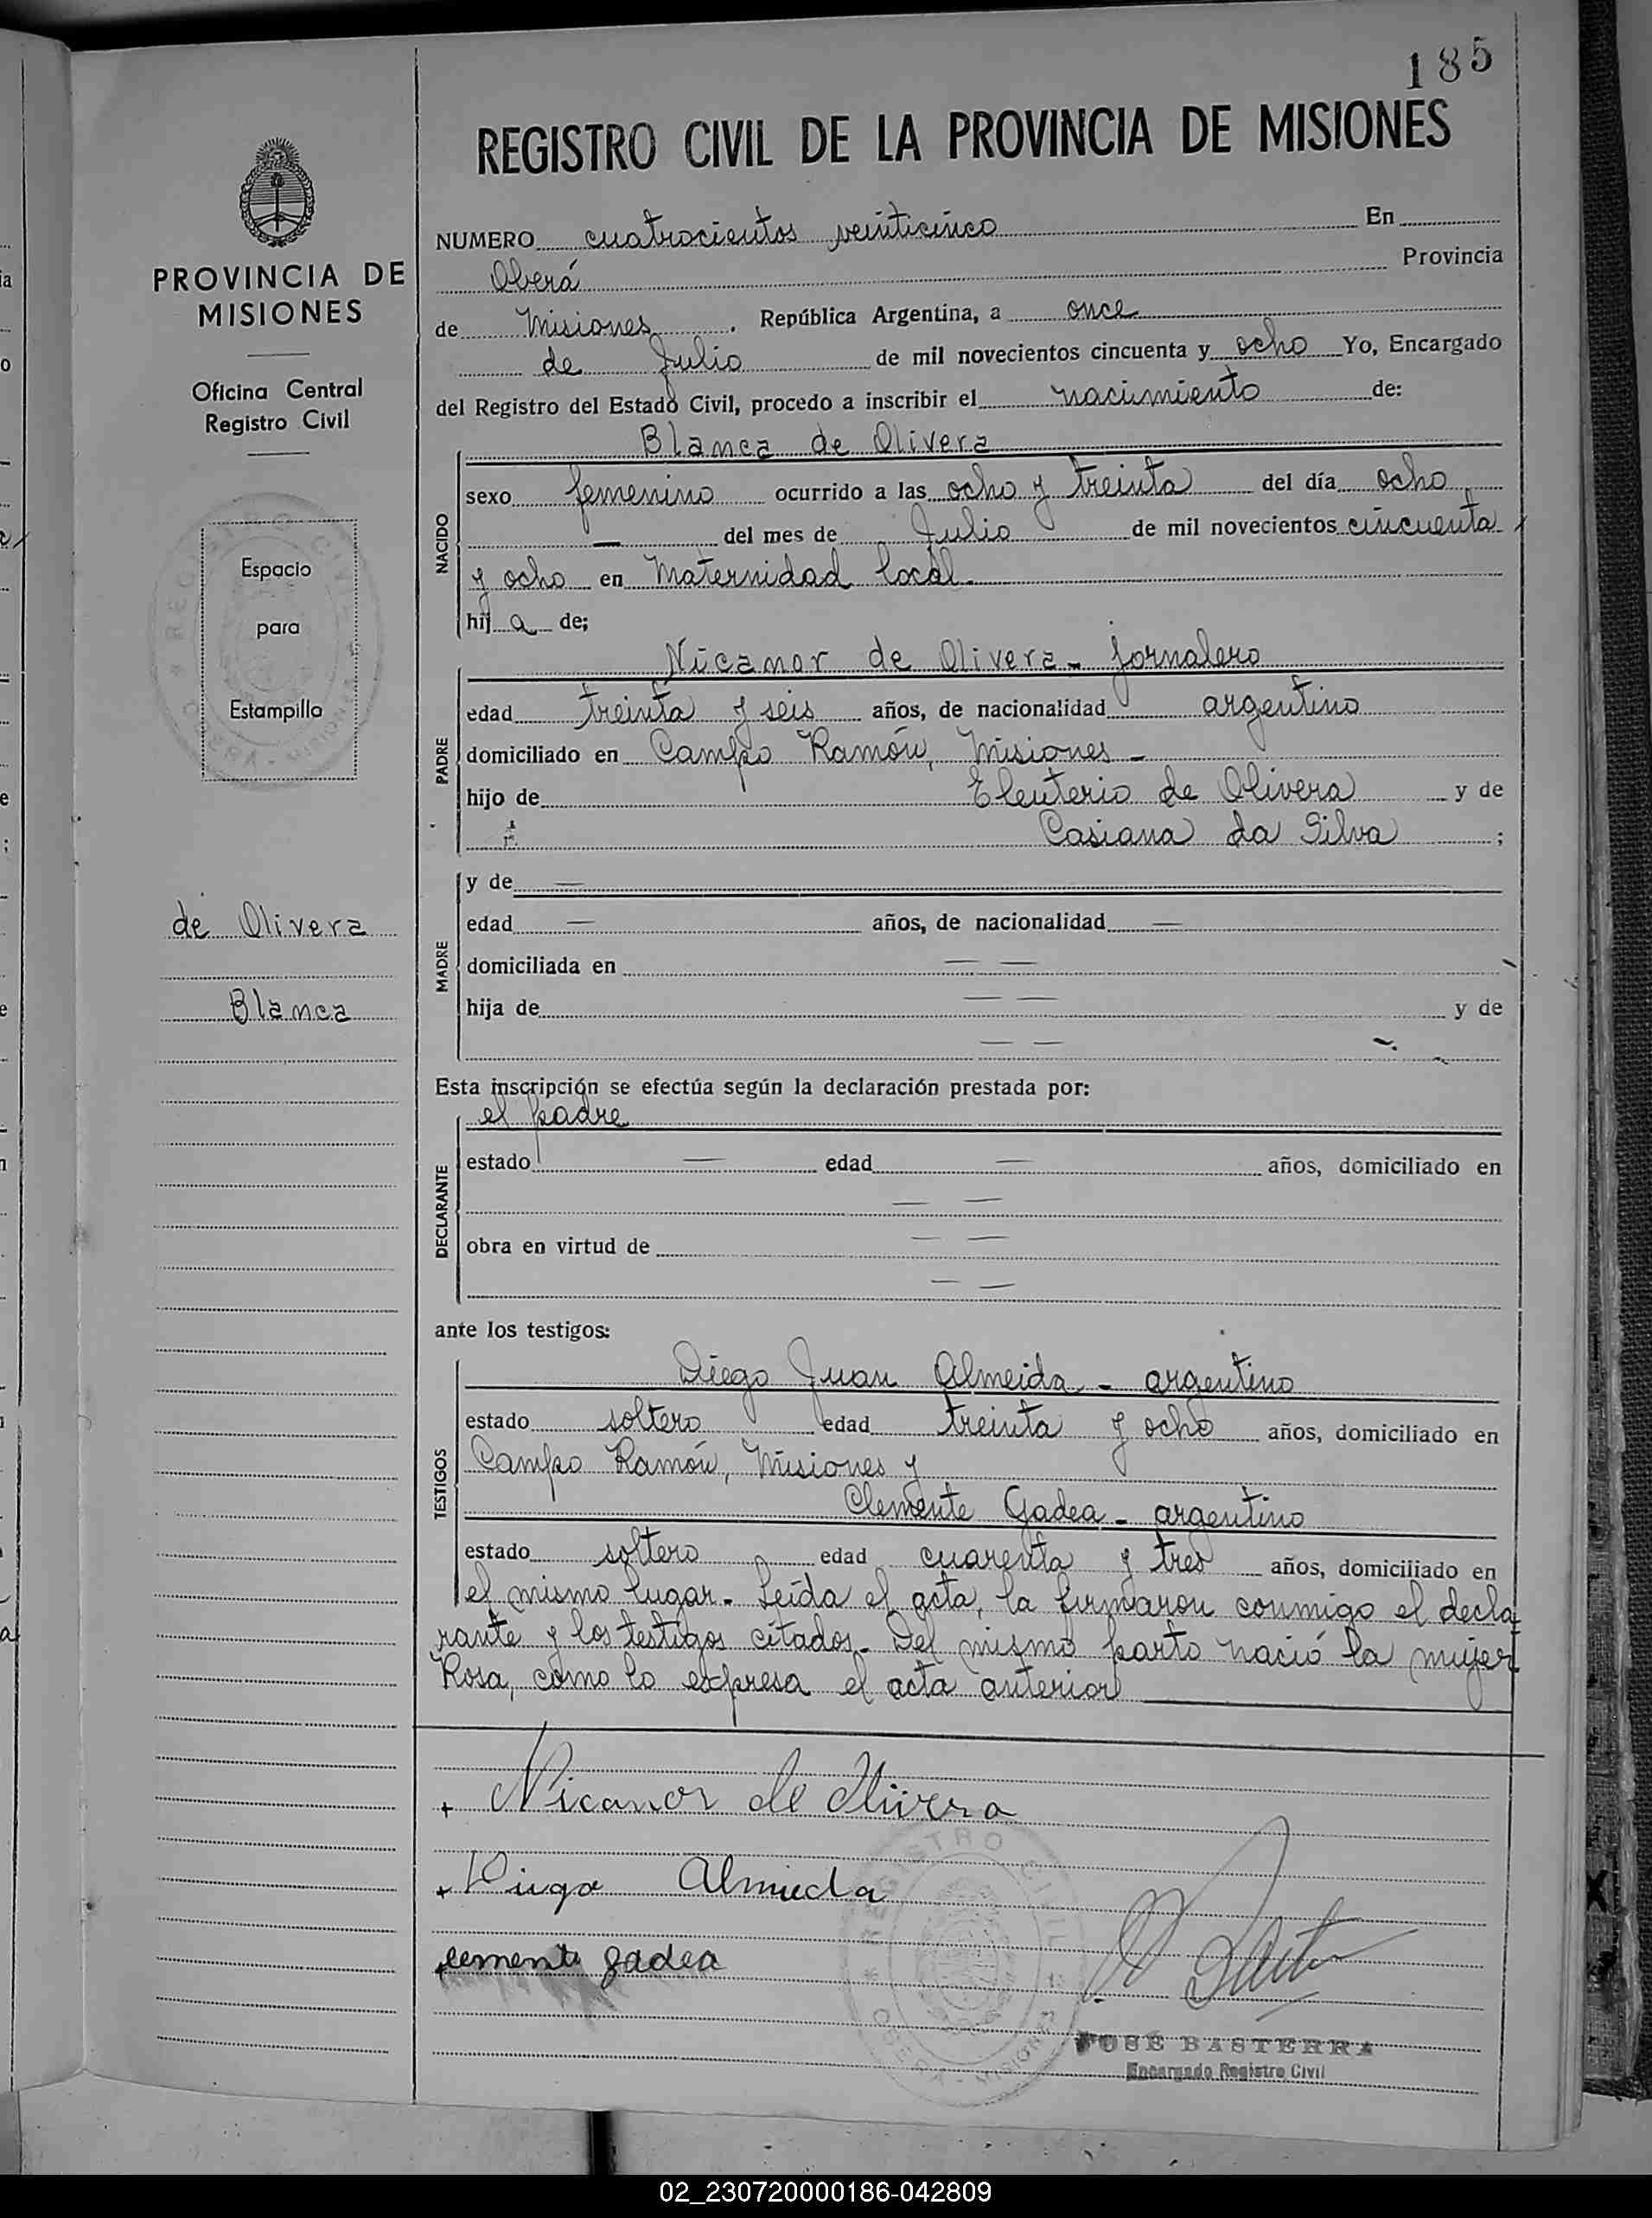 185
REGISTRO CIVIL DE LA PROVINCIA DE MISIONES
PROVINCIA DE
MISIONES
Oficina Central
Registro Civil
Espacio
para
Estampilla
de Olivera
Blanca
NUMERO cuatrocientos veinticinco En
Oberá Provincia
de Misiones. República Argentina, a once
de Julio de mil novecientos cincuenta y ocho Yo, Encargado
del Registro del Estado Civil, procedo a inscribir el nacimiento de:
Blanca de Olivera
NACIDO
sexo femenino ocurrido a las ocho y treinta del día ocho
— del mes de Julio de mil novecientos cincuenta
y ocho en Maternidad local.
hija de;
Nicanor de Olivera - jornalero
PADRE
edad treinta y seis años, de nacionalidad argentino
domiciliado en Campo Ramón, Misiones -
hijo de Eleuterio de Olivera y de
Casiana da Silva ;
MADRE
y de —
edad — años, de nacionalidad —
domiciliada en — —
hija de — — y de
— —
Esta inscripción se efectúa según la declaración prestada por:
el padre
DECLARANTE
estado — edad — años, domiciliado en
— —
obra en virtud de — —
— —
ante los testigos:
Diego Juan Almeida - argentino
TESTIGOS
estado soltero edad treinta y ocho años, domiciliado en
Campo Ramón, Misiones y
Clemente Gadea - argentino
estado soltero edad cuarenta y tres años, domiciliado en
el mismo lugar. Leída el acta, la firmaron conmigo el decla
rante y los testigos citados. Del mismo parto nació la mujer
Rosa, como lo expresa el acta anterior
+ Nicanor de Olivera
+ Diego Almeida
clemente gadea
REGISTRO CIVIL
OBERA - MISIONES
JOSÉ BASTERRA
Encargado Registro Civil
02_230720000186-042809